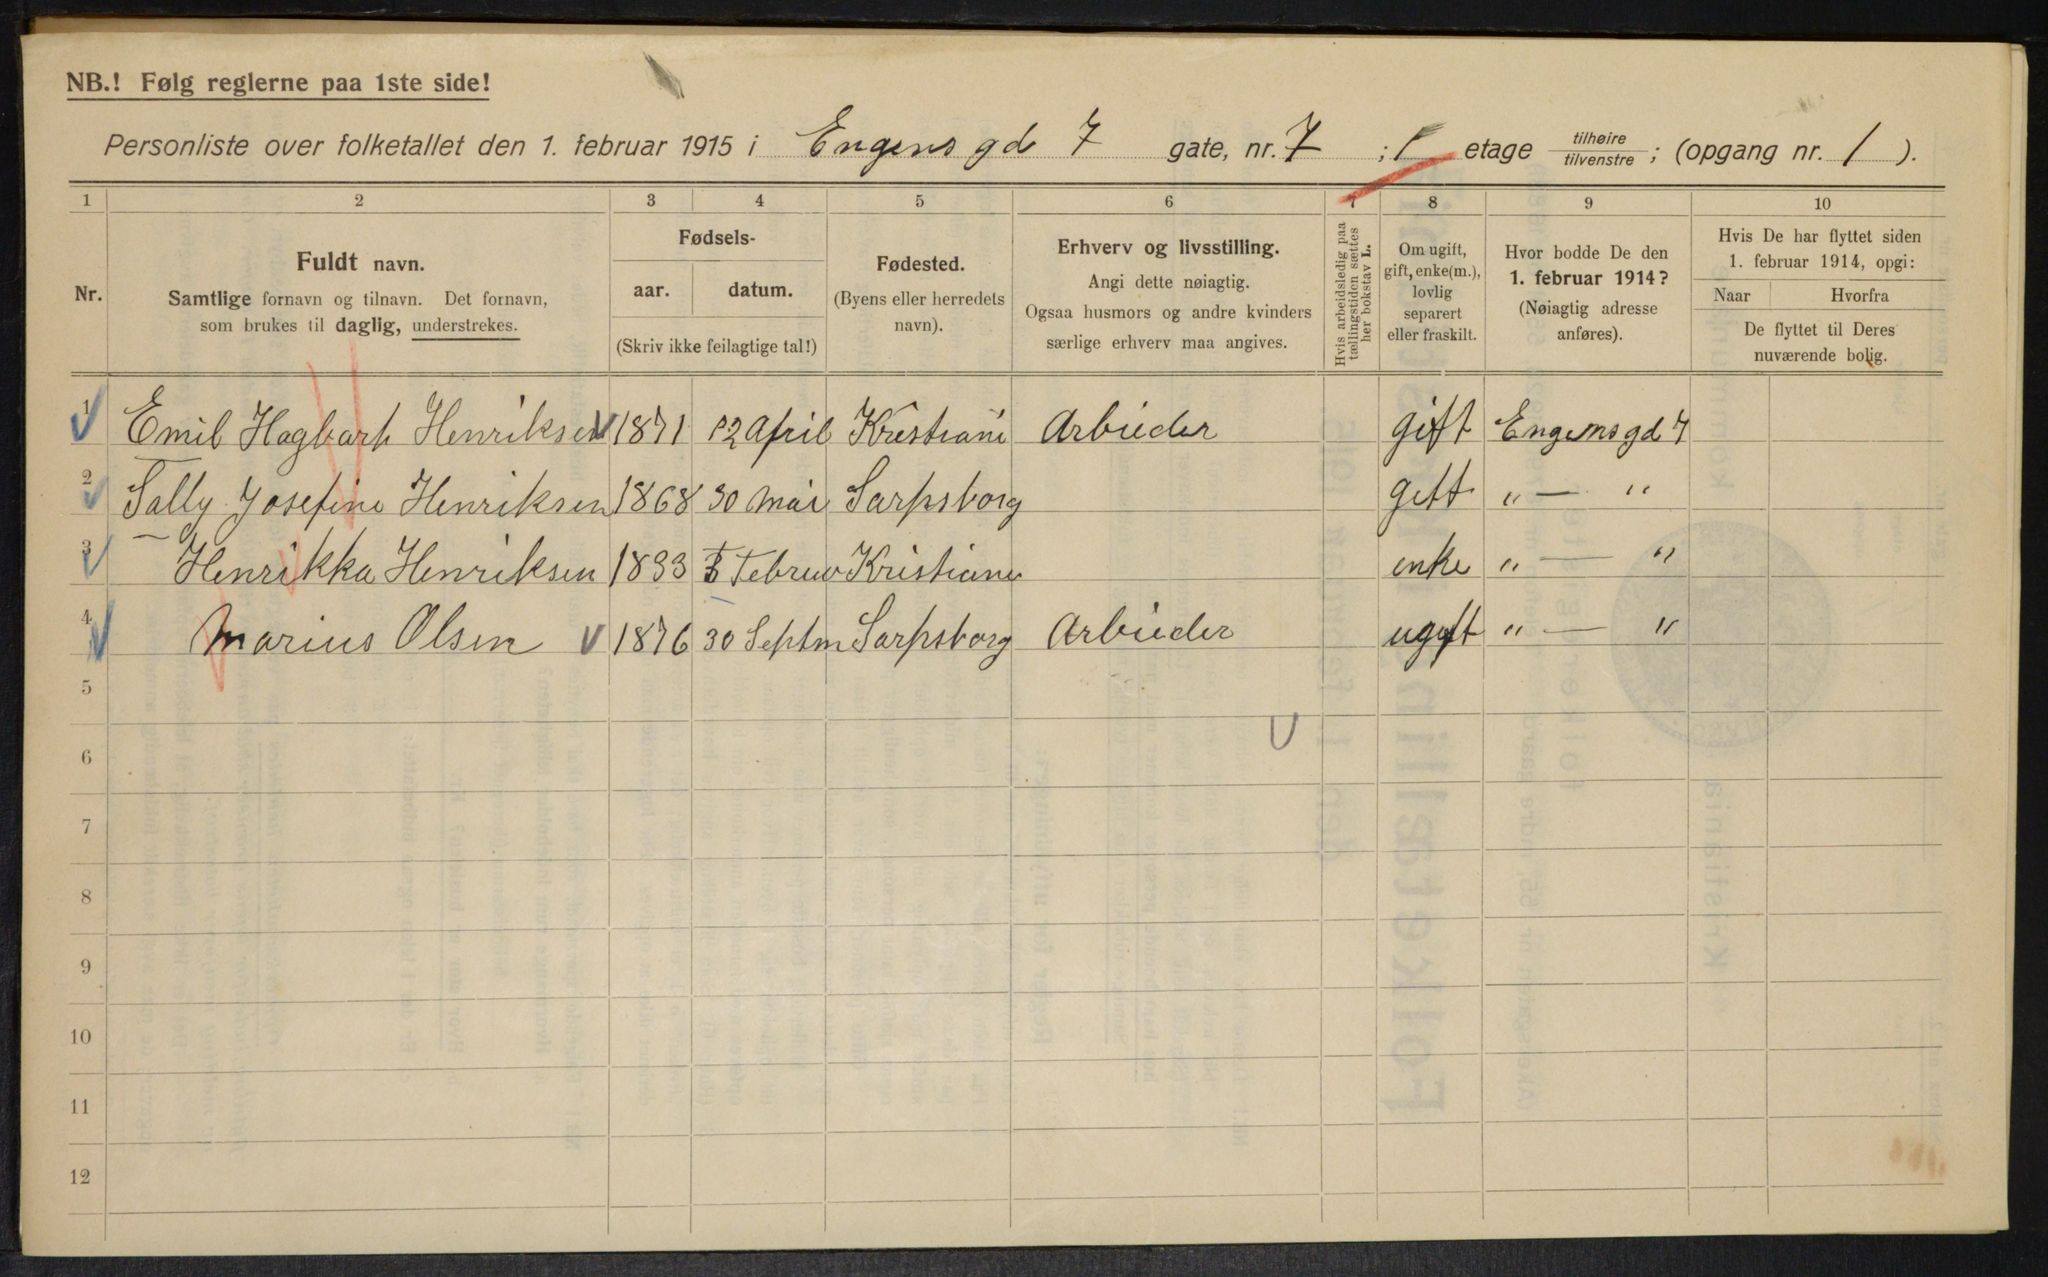 NB.! Følg reglerne paa 1ste side!
Personliste over folketallet den 1. februar 1915 i Engensgd 7 gate, nr. 7 ; 1 etage tilhøire/tilvenstre ; (opgang nr. 1 ).
1 2 3 4 5 6 7 8 9 10
Nr.
Fuldt navn.
Samtlige fornavn og tilnavn. Det fornavn,
som brukes til daglig, understrekes.
Fødsels-
aar. datum.
(Skriv ikke feilagtige tal!)
Fødested.
(Byens eller herredets
navn).
Erhverv og livsstilling.
Angi dette nøiagtig.
Ogsaa husmors og andre kvinders
særlige erhverv maa angives.
Hvis arbeidsledig paa
tællingstiden sættes
her bokstav L.
Om ugift,
gift, enke(m.),
lovlig
separert
eller fraskilt.
Hvor bodde De den
1. februar 1914?
(Nøiagtig adresse
anføres).
Hvis De har flyttet siden
1. februar 1914, opgi:
Naar Hvorfra
De flyttet til Deres
nuværende bolig.
1 Emil Hagbart Henriksen 1871 12 April Kristiani Arbieder gift Engensgd 7
2 Sally Josefine Henriksen 1868 30 Mai Sarpsborg gift " — "
3 Henrikka Henriksen 1833 Februa Kristiani enke " — "
4 Marius Olsen 1876 30 Septm Sarpsborg Arbieder ugift " — "
5
6
7
8
9
10
11
12